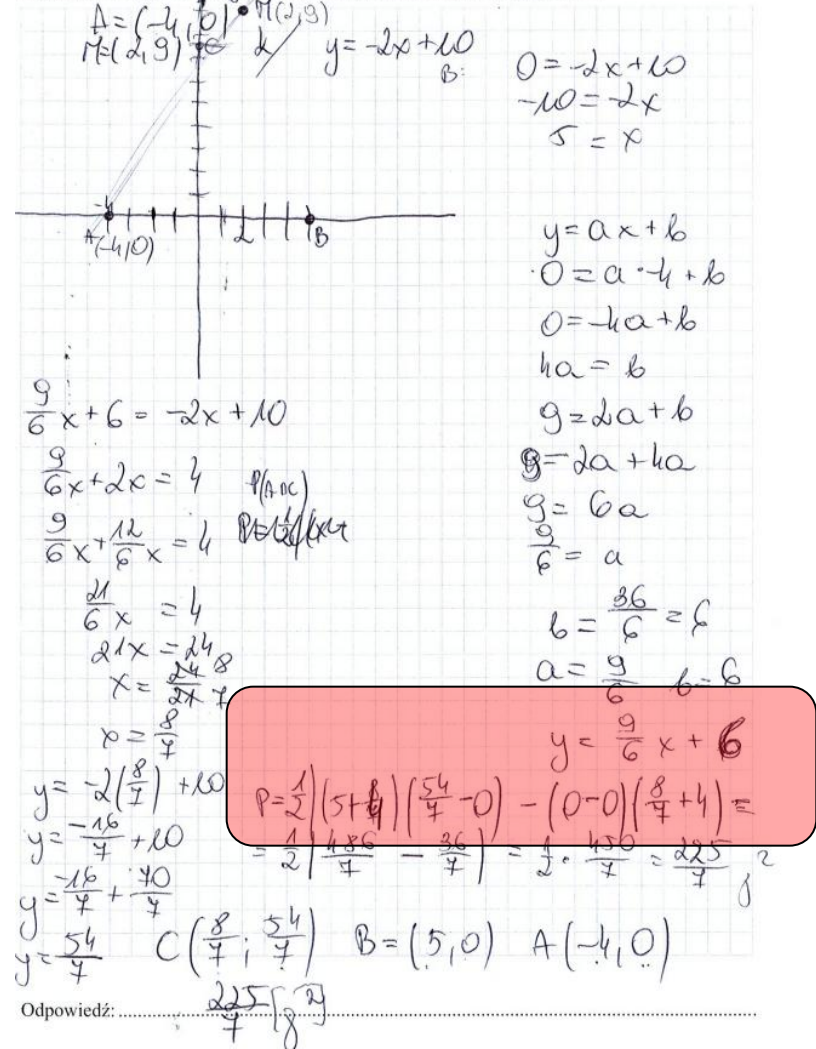 A=(-4,0)
M=(2,9)
M(2,9)
k
y=-2x+10
B:
-4
A(-4,0)
2
B
0=-2x+10
-10=-2x
5=x
y=ax+b
0=a·-4+b
0=-4a+b
4a=b
9=2a+b
9=2a+4a
9=6a
9/6=a
b=36/6=6
a=9/6 b=6
y=9/6x+6
9/6x+6=-2x+10
9/6x+2x=4
9/6x+12/6x=4
21/6x=4
21x=24
x=24/21 8/7
x=8/7
y=-2(8/7)+10
y=-16/7+10
y=-16/7+70/7
y=54/7
P(ABC)
P=1/2|(5+4)(54/7-0)-(0-0)(8/7+4)=
=1/2|486/7-36/7|=1/2·450/7=225/7 j²
C(8/7;54/7) B=(5,0) A(-4,0)
Odpowiedź: 225/7[j²]